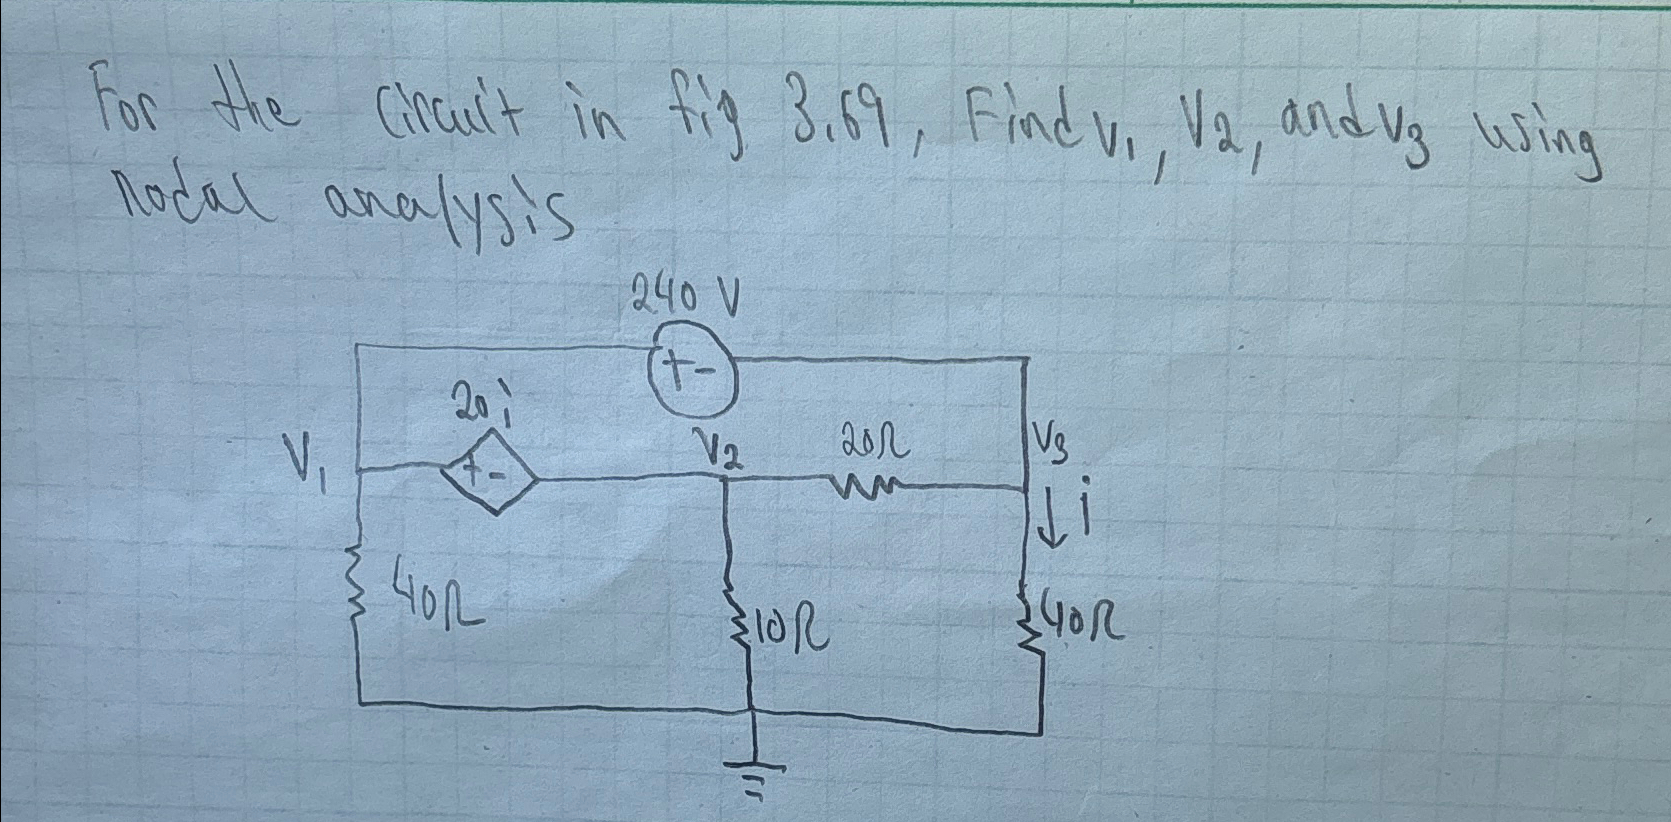 For the circuit in fig 3.69, Find v₁, V₂, and v₃ using
nodal analysis
240 V
+ -
20i
V₁
+ -
V₂
20Ω
V₃
i
40Ω
10Ω
40Ω